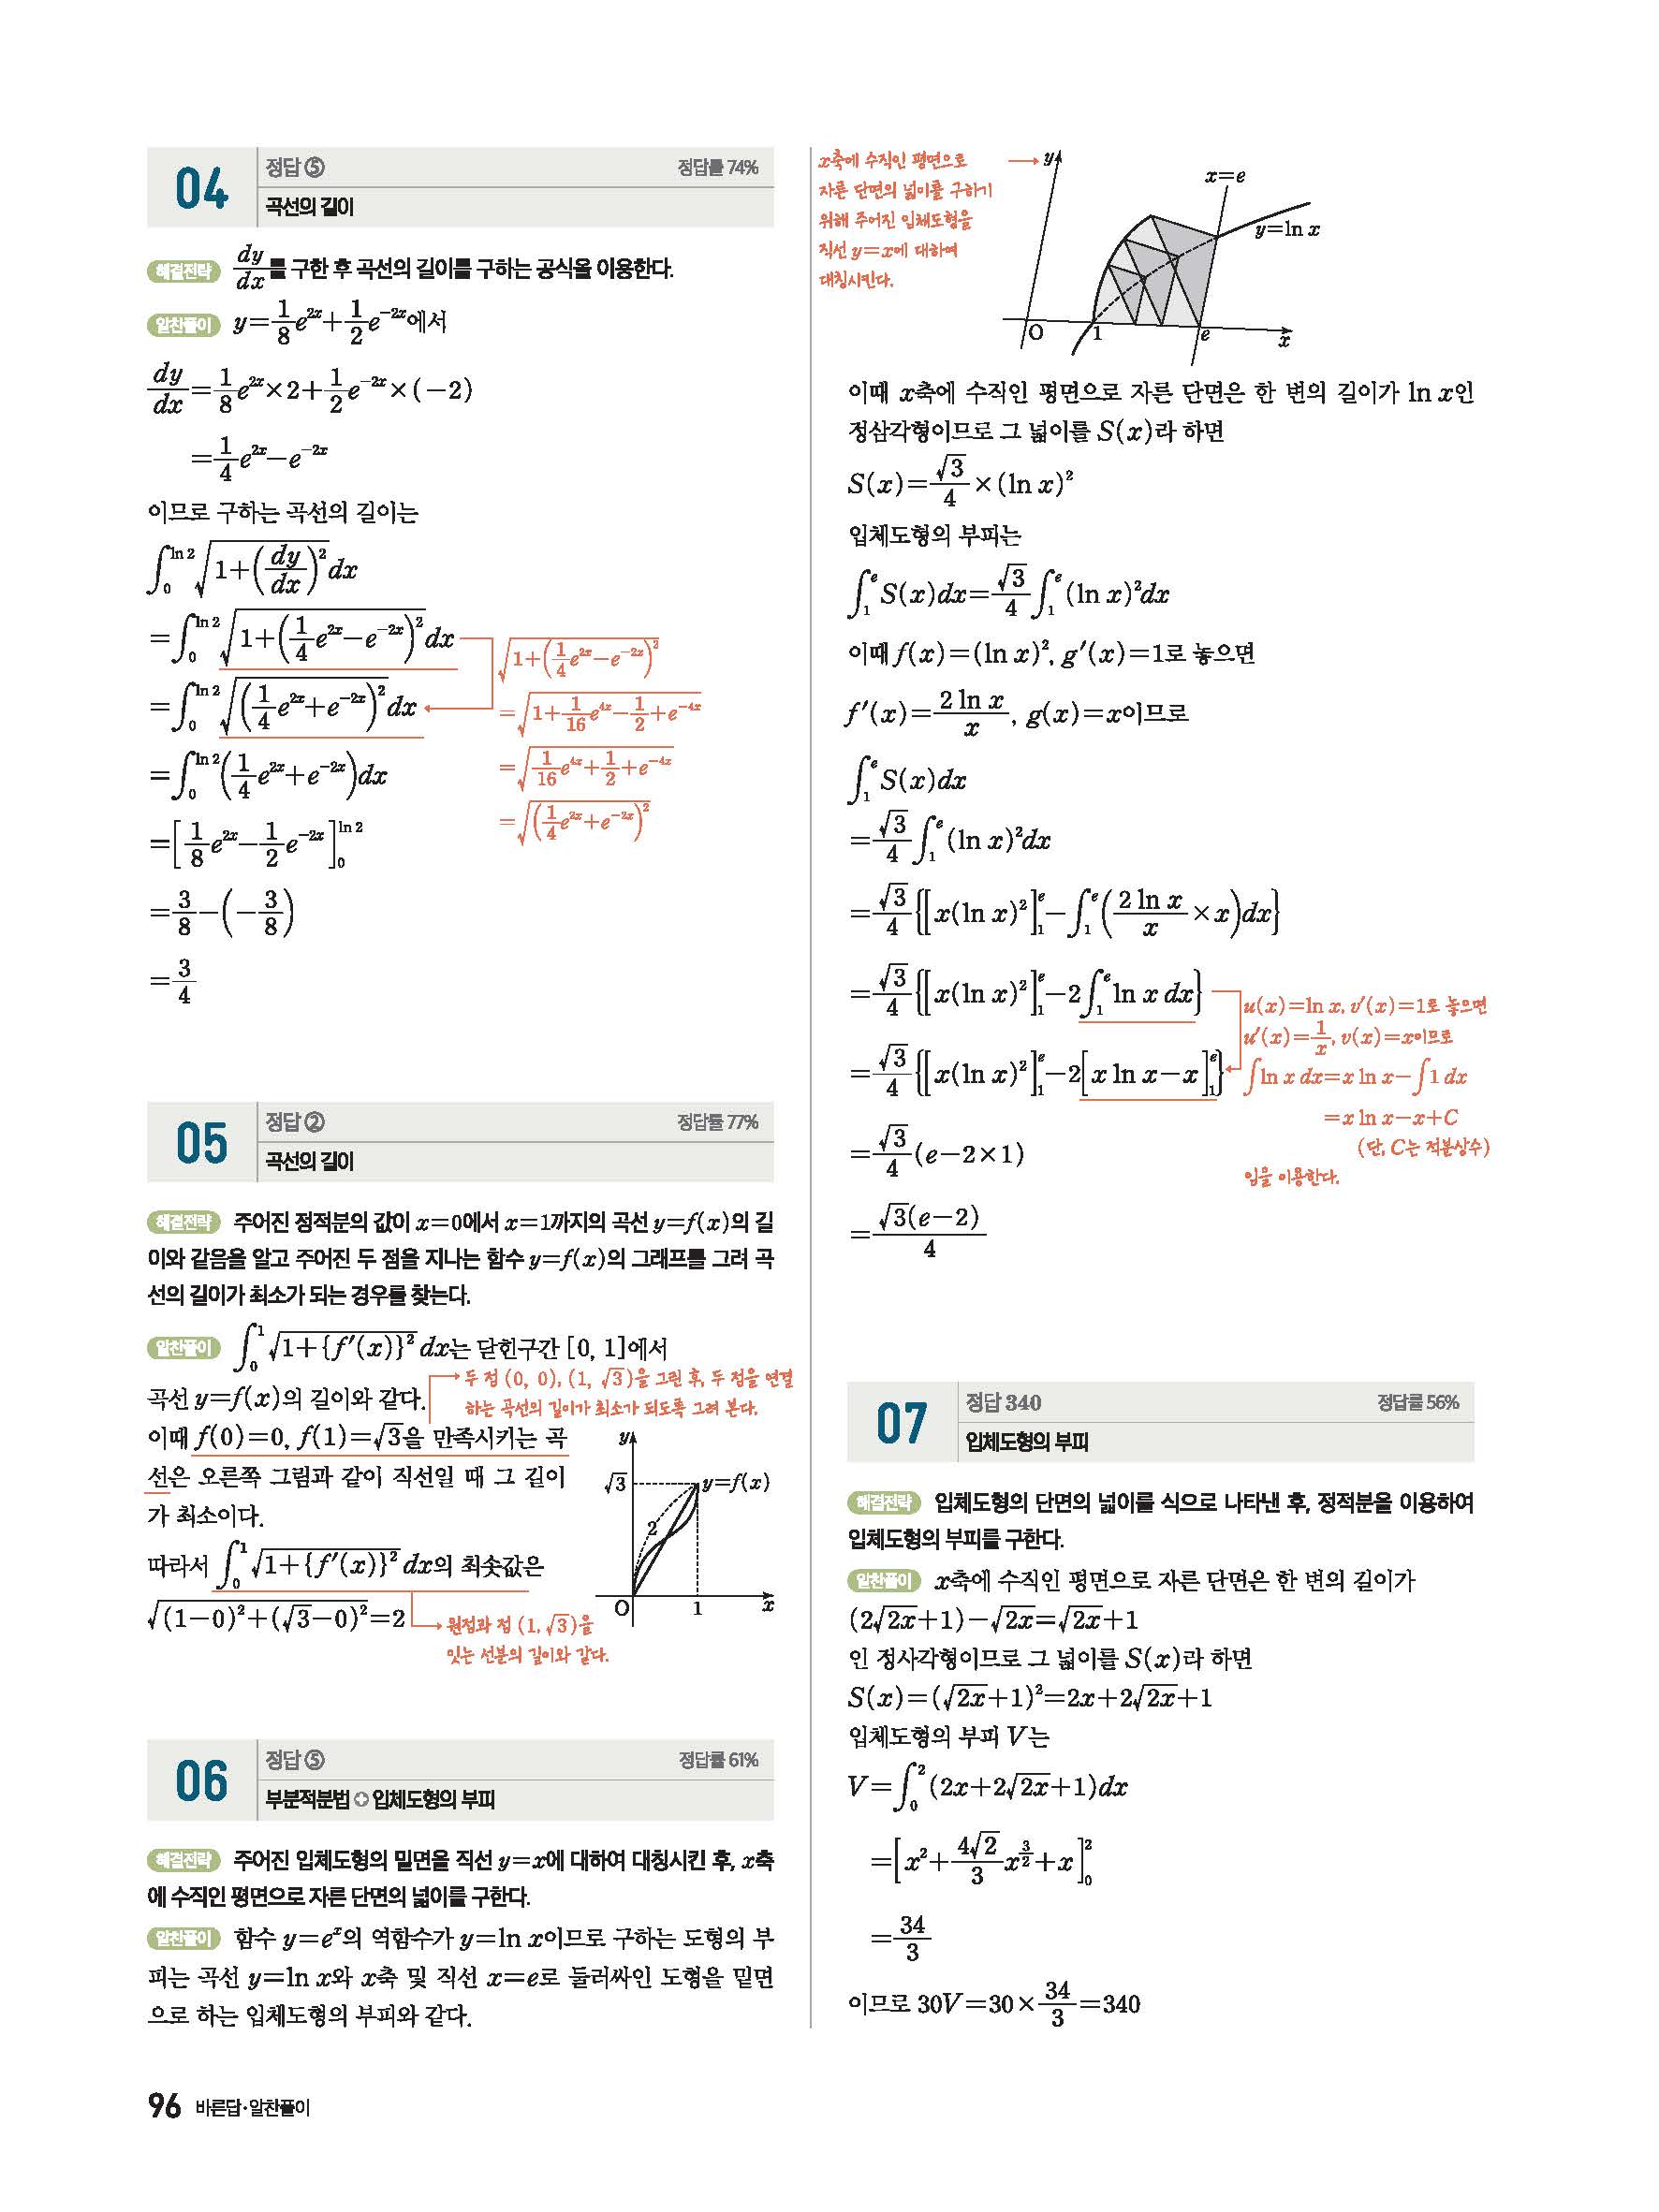 04
정답 ⑤
정답률 74%
곡선의 길이
해결전략 dy/dx를 구한 후 곡선의 길이를 구하는 공식을 이용한다.
알찬풀이 y=1/8 e^{2x}+1/2 e^{-2x}에서
dy/dx=1/8 e^{2x}×2+1/2 e^{-2x}×(-2)
=1/4 e^{2x}-e^{-2x}
이므로 구하는 곡선의 길이는
∫_0^{ln 2} √(1+(dy/dx)^2) dx
=∫_0^{ln 2} √(1+(1/4 e^{2x}-e^{-2x})^2) dx
=∫_0^{ln 2} √((1/4 e^{2x}+e^{-2x})^2) dx
=∫_0^{ln 2} (1/4 e^{2x}+e^{-2x})dx
=[1/8 e^{2x}-1/2 e^{-2x}]_0^{ln 2}
=3/8-(-3/8)
=3/4
√(1+(1/4 e^{2x}-e^{-2x})^2)
=√(1+1/16 e^{4x}-1/2+e^{-4x})
=√(1/16 e^{4x}+1/2+e^{-4x})
=√((1/4 e^{2x}+e^{-2x})^2)
05
정답 ②
정답률 77%
곡선의 길이
해결전략 주어진 정적분의 값이 x=0에서 x=1까지의 곡선 y=f(x)의 길
이와 같음을 알고 주어진 두 점을 지나는 함수 y=f(x)의 그래프를 그려 곡
선의 길이가 최소가 되는 경우를 찾는다.
알찬풀이 ∫_0^1 √(1+{f′(x)}^2) dx는 닫힌구간 [0, 1]에서
곡선 y=f(x)의 길이와 같다.
두 점 (0, 0), (1, √3)을 그린 후, 두 점을 연결
하는 곡선의 길이가 최소가 되도록 그려 본다.
이때 f(0)=0, f(1)=√3을 만족시키는 곡
선은 오른쪽 그림과 같이 직선일 때 그 길이
가 최소이다.
따라서 ∫_0^1 √(1+{f′(x)}^2) dx의 최솟값은
√((1-0)^2+(√3-0)^2)=2
원점과 점 (1, √3)을
잇는 선분의 길이와 같다.
y
√3
y=f(x)
2
O
1
x
06
정답 ⑤
정답률 61%
부분적분법 ✚ 입체도형의 부피
해결전략 주어진 입체도형의 밑면을 직선 y=x에 대하여 대칭시킨 후, x축
에 수직인 평면으로 자른 단면의 넓이를 구한다.
알찬풀이 함수 y=e^x의 역함수가 y=ln x이므로 구하는 도형의 부
피는 곡선 y=ln x와 x축 및 직선 x=e로 둘러싸인 도형을 밑면
으로 하는 입체도형의 부피와 같다.
x축에 수직인 평면으로
자른 단면의 넓이를 구하기
위해 주어진 입체도형을
직선 y=x에 대하여
대칭시킨다.
y
x=e
y=ln x
O
1
e
x
이때 x축에 수직인 평면으로 자른 단면은 한 변의 길이가 ln x인
정삼각형이므로 그 넓이를 S(x)라 하면
S(x)=√3/4×(ln x)^2
입체도형의 부피는
∫_1^e S(x)dx=√3/4 ∫_1^e (ln x)^2dx
이때 f(x)=(ln x)^2, g′(x)=1로 놓으면
f′(x)=2 ln x/x, g(x)=x이므로
∫_1^e S(x)dx
=√3/4 ∫_1^e (ln x)^2dx
=√3/4 {[x(ln x)^2]_1^e-∫_1^e (2 ln x/x×x)dx}
=√3/4 {[x(ln x)^2]_1^e-2∫_1^e ln x dx}
=√3/4 {[x(ln x)^2]_1^e-2[x ln x-x]_1^e}
=√3/4 (e-2×1)
=√3(e-2)/4
u(x)=ln x, v′(x)=1로 놓으면
u′(x)=1/x, v(x)=x이므로
∫ln x dx=x ln x-∫1 dx
=x ln x-x+C
(단, C는 적분상수)
임을 이용한다.
07
정답 340
정답률 56%
입체도형의 부피
해결전략 입체도형의 단면의 넓이를 식으로 나타낸 후, 정적분을 이용하여
입체도형의 부피를 구한다.
알찬풀이 x축에 수직인 평면으로 자른 단면은 한 변의 길이가
(2√(2x)+1)-√(2x)=√(2x)+1
인 정사각형이므로 그 넓이를 S(x)라 하면
S(x)=(√(2x)+1)^2=2x+2√(2x)+1
입체도형의 부피 V는
V=∫_0^2 (2x+2√(2x)+1)dx
=[x^2+4√2/3 x^{3/2}+x]_0^2
=34/3
이므로 30V=30×34/3=340
96 바른답·알찬풀이